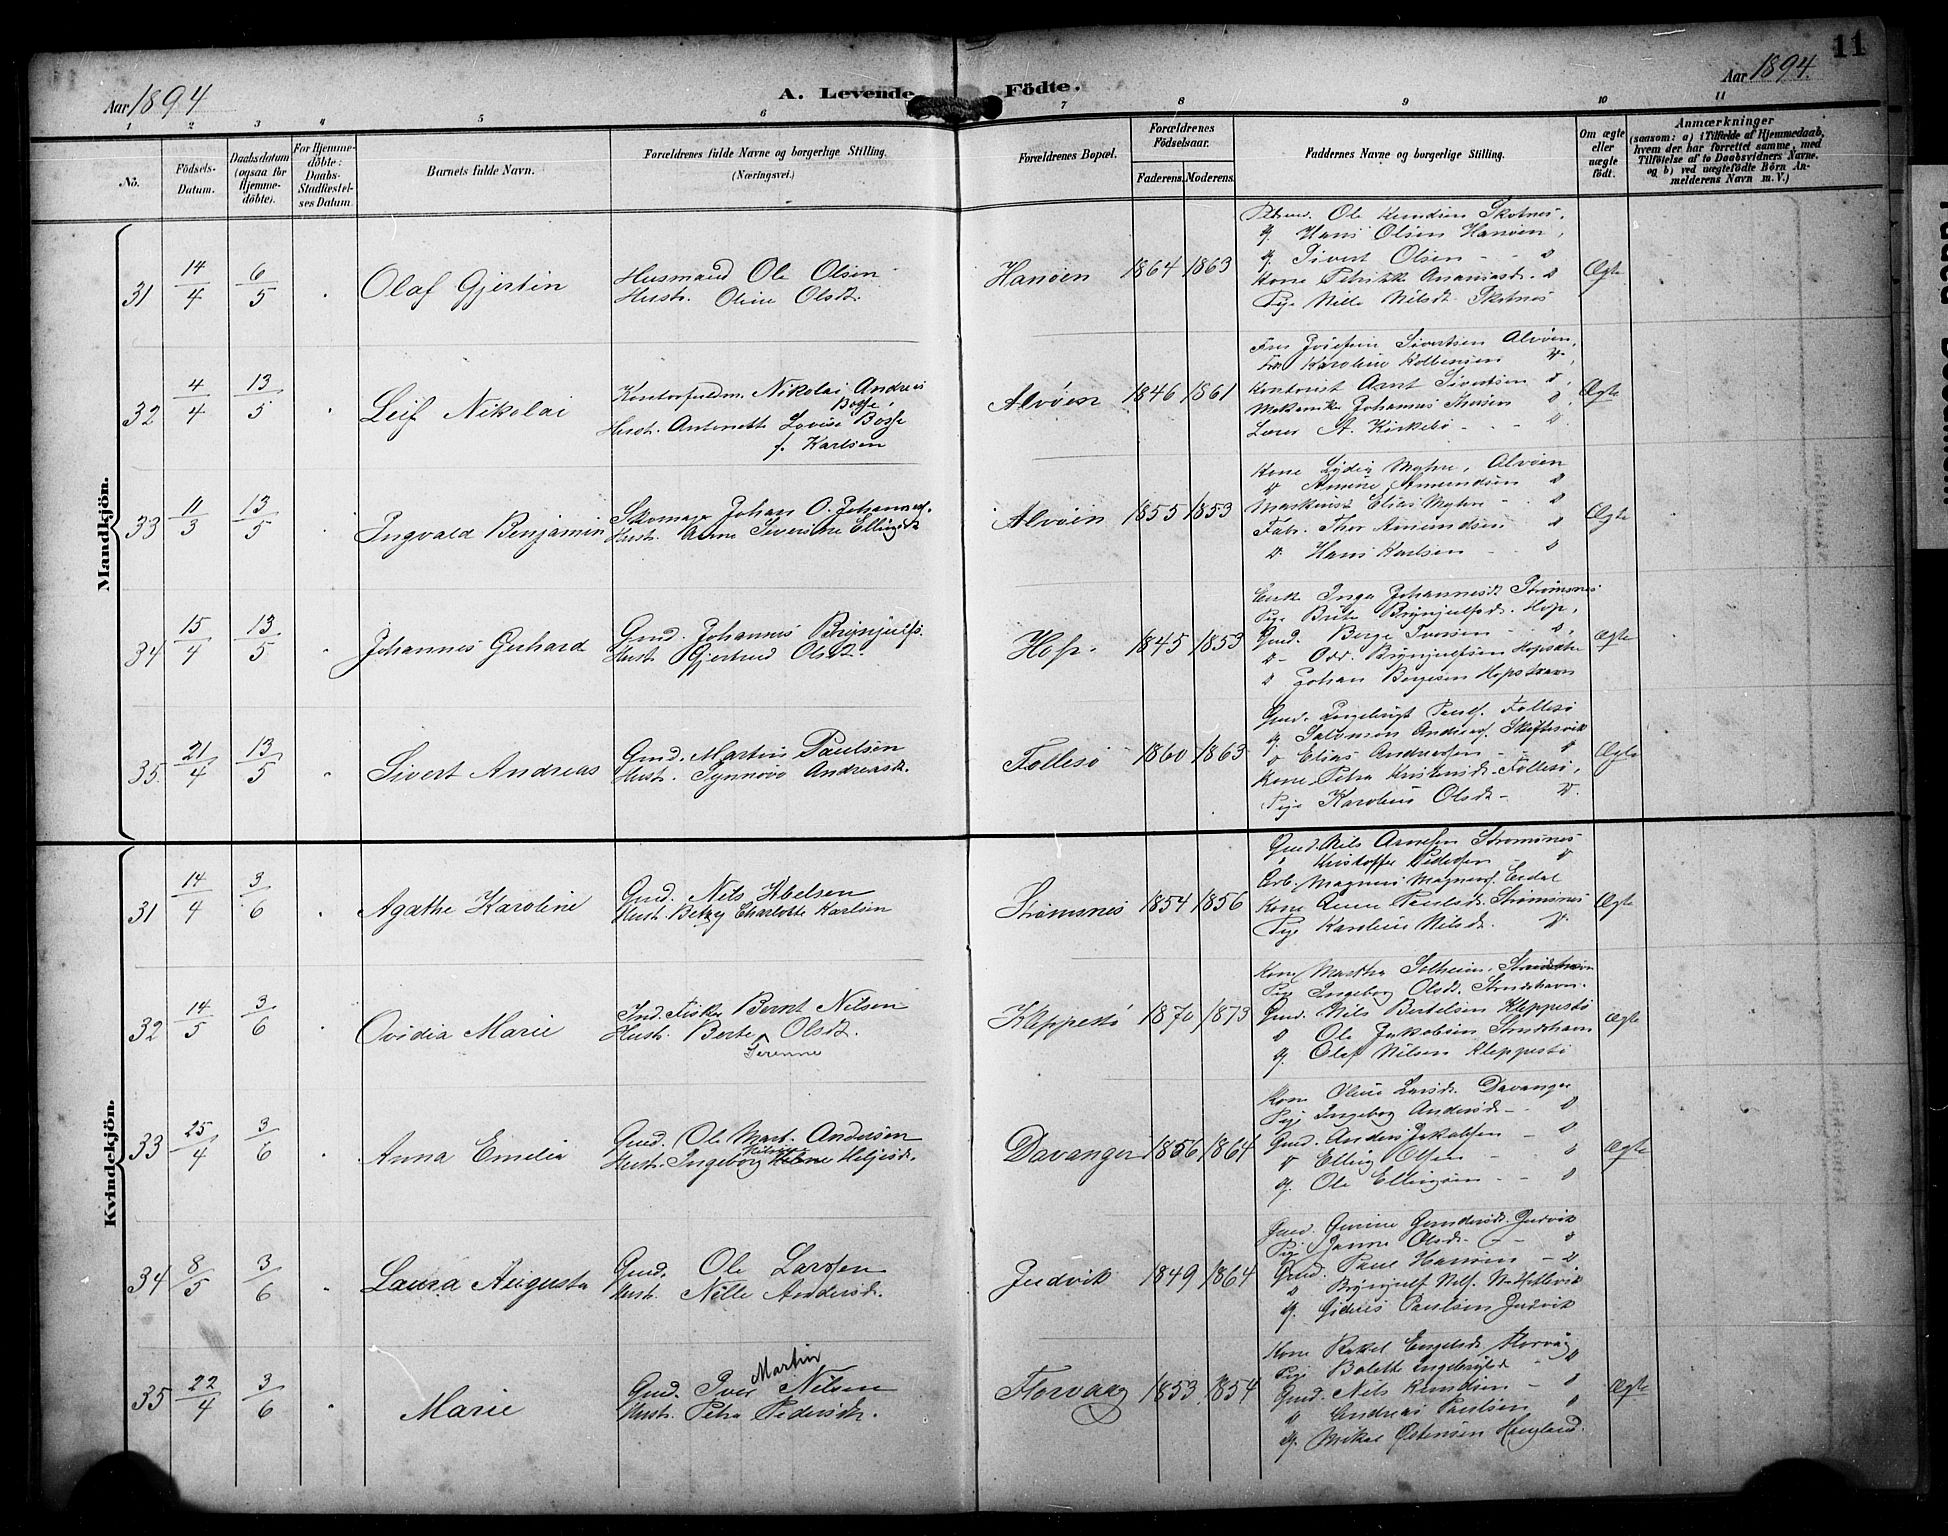 11
Aar 1894
A. Levende Födte.
Aar 1894.
1 2 3 4 5 6 7 8 9 10 11
No.
Födsels-Datum.
Daabsdatum (ogsaa for Hjemmedöbte).
For Hjemmedöbte: Daabs-Stadfæstelses Datum.
Barnets fulde Navn.
Forældrenes fulde Navne og borgerlige Stilling. (Næringsvei.)
Forældrenes Bopæl.
Forældrenes Födselsaar.
Faderens. Moderens.
Faddernes Navne og borgerlige Stilling.
Om ægte eller uægte født.
Anmærkninger
(saasom: a) i Tilfælde af Hjemmedaab, hvem der har forrettet samme, med Tilföielse af to Daabsvidners Navne. og b) ved uægtefödte Börn Anmelderens Navn m. V.)
Mandkjön.
31 14/4 6/5 Olaf Gjertin
Husmand Ole Olsen
Hustr. Oline Olsdt.
Hanöen 1864 1863
Ole Knudsen Skotnes,
Hans Olsen Hanöen,
Sivert Olsen
Kone Petrikke Ananiasd.
Pige Nille Nilsdt. Skotnes
Ægte
32 4/4 13/5 Leif Nikolai
Kontorfuldm. Nikolai Andreas Bosse,
Hustr. Antonette Lovise Bosse
f. Karlsen
Alvöen 1846 1861
Josefine Sivertsen Alvöen,
Karoline
Kontorist Arnt Sivertsen
Mekaniker Johannes
Lærer A. Kirkebö
Ægte
33 11/3 13/5 Ingvald Benjamin
Skomager Johan O. Johannes.
Hustr. Anne Severine Ellingsdt
Alvöen 1855 1853
Kone Lydia Myhre, Alvöen
Amine Amundsen
Maskinist Elias Myhre
Fabr. Thor Amundsen
Hans Karlsen
Ægte
34 15/4 13/5 Johannes Gerhard
Gmd. Johannes Brynjulfs.
Hustr. Gjertrud Olsdt.
Hop. 1845 1853
Enke Inga Johannesdt. Strömsnes
Pige Brite Brynjulfsd. Hop,
Gmd. Berge Iversen
Odd. Brynjulfsen
Johan Bergesen Hopstravn
Ægte
35. 21/4 13/5 Sivert Andreas
Gmd. Martin Paulsen
Hustr. Synnove Andreasdt.
Follesö 1860 1863
Gmd. Ingebrigt Pauls. Follesö
Salomon Andreas. Skiftesvik
Elias Andreassen
Kone Petra Follesö,
Pige Karoline Olsdt.
Ægte
Kvindekjön.
31 14/4 3/6 Agathe Karoline
Gmd. Nils Abelsen
Hustr. Betzy Charlotte Karlsen
Strömsnes 1854 1856
Gmd. Nils Arnesen Strömsnes
Kristoffer Pedersen
Arb. Magnus Magnus. Eidal
Kone Anne Paulsd. Strömsnes
Pige Karoline Nilsd.
Ægte
32 14/5 3/6 Ovidia Marie
Ind. Fisker Bernt Nilsen
Hustr. Berte Serenne Olsdt.
Kleppestö 1870 1873
Kone Martha Solheim, Strudshavn
Pige Ingeborg Olsd. Strudshavn.
Gmd. Nils Bertelsen Kleppestö
Ole Jakobsen Strudshavn
Olaf Nilsen Kleppestö
Ægte
33 25/4 3/6 Anna Emelia
Gmd. Ole Mart. Andersen
Hustr. Ingeborg Heljesdt.
Davanger 1856 1864
Kone Oline Larsdt. Davanger
Pige Ingeborg Andersdt.
Gmd. Anders Jakobsen
Elling Olsen
Ole Ellingsen
Ægte
34 8/5 3/6 Laura Augusta
Gmd. Ole Larssen
Hustr. Nille Andersdt.
Judvik 1849 1864
Gurine Gundersdt. Judvik
Pige Janne Olsdt.
Gmd. Paul Hansen
Brynjulf Nils.
Paulsen Judvik
35 22/4 3/6 Marie
Gmd. Iver Martin Nilsen
Hustr. Petra Pedersdt.
Florvaag 1853 1854
Kone Rakel Engelsdt. Florvåg
Pige Bolette Ingebrigtsd.
Gmd. Nils Knudsen
Andreas Paulsen
Mikal Östensen Haugland.
Ægte